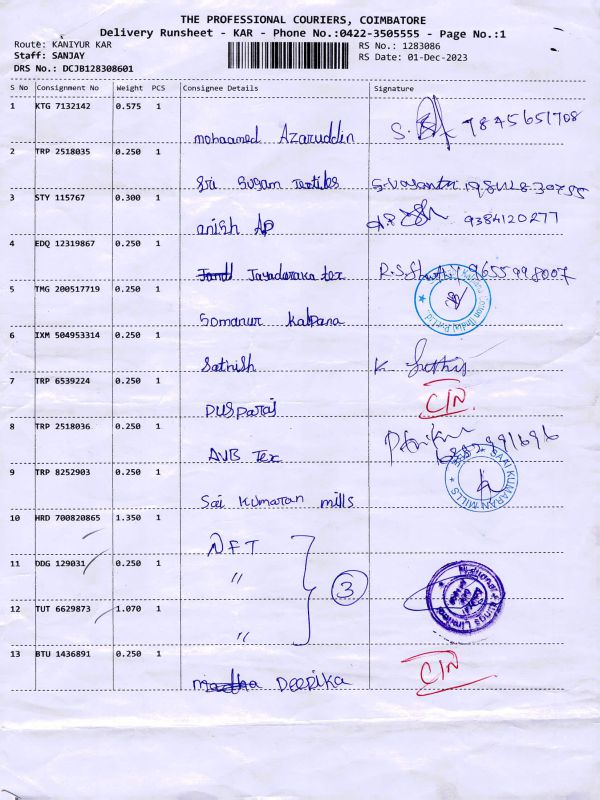 THE PROFESSIONAL COURIERS, COIMBATORE
Delivery Runsheet - KAR - Phone No.:0422-3505555 - Page No.:1
Route: KANIYUR KAR RS No.: 1283086
Staff: SANJAY RS Date: 01-Dec-2023
DRS No.: DCJB128308601
S No Consignment No Weight PCS Consignee Details Signature
1 KTG 7132142 0.575 1
mohaamed Azaruddin S. 9845651708
2 TRP 2518035 0.250 1
Sri Sugam Textiles
3 STY 115767 0.300 1
anish AP 9384120277
4 EDQ 12319867 0.250 1
Jayadaraka tex 9655998007
5 TMG 200517719 0.250 1
Somanur Kalpana
6 IXM 504953314 0.250 1
Sathish K
7 TRP 6539224 0.250 1
DUSParaj C/N
8 TRP 2518036 0.250 1
AVB Tex
9 TRP 8252903 0.250 1
Sai Kumaran mills SAI KUMARAN MILLS
10 HRD 700820865 1.350 1
NFT
11 DDG 129031 0.250 1
" 3
12 TUT 6629873 1.070 1
"
13 BTU 1436891 0.250 1
Deepika C/N